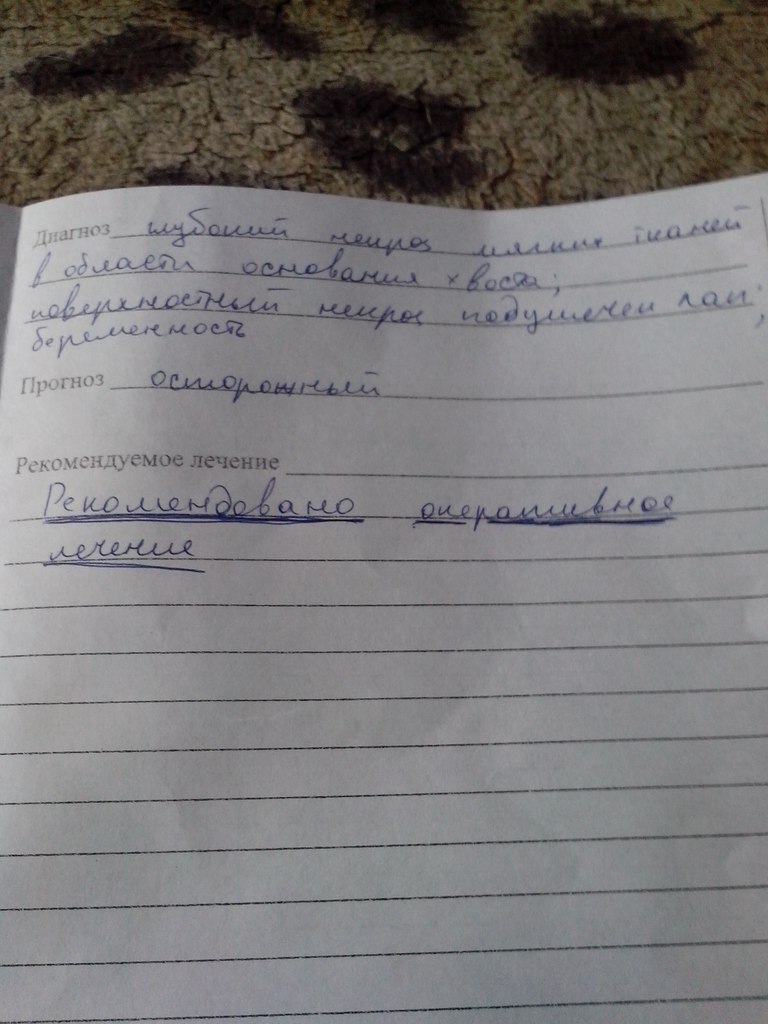 Диагноз глубокий некроз мягких тканей
в области основания хвоста;
поверхностный некроз подушечек лап;
беременность
Прогноз осторожный
Рекомендуемое лечение
Рекомендовано оперативное
лечение